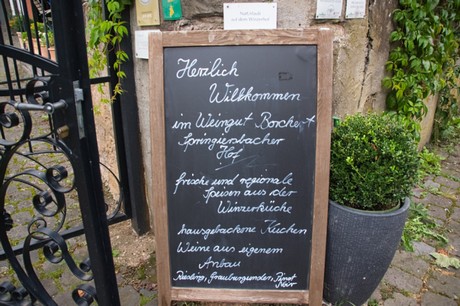 Herzlich
Willkommen
im Weingut Borchert
Springiersbacher
Hof
frische und regionale
Speisen aus der
Winzerküche
hausgebackene Kuchen
Weine aus eigenem
Anbau
Riesling, Grauburgunder, Pinot
Noir